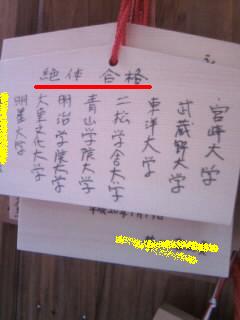 絶体 合格
宮崎大学
武蔵野大学
東洋大学
二松学舎大学
青山学院大学
明治学院大学
大東文化大学
明星大学
平成20年1月19日